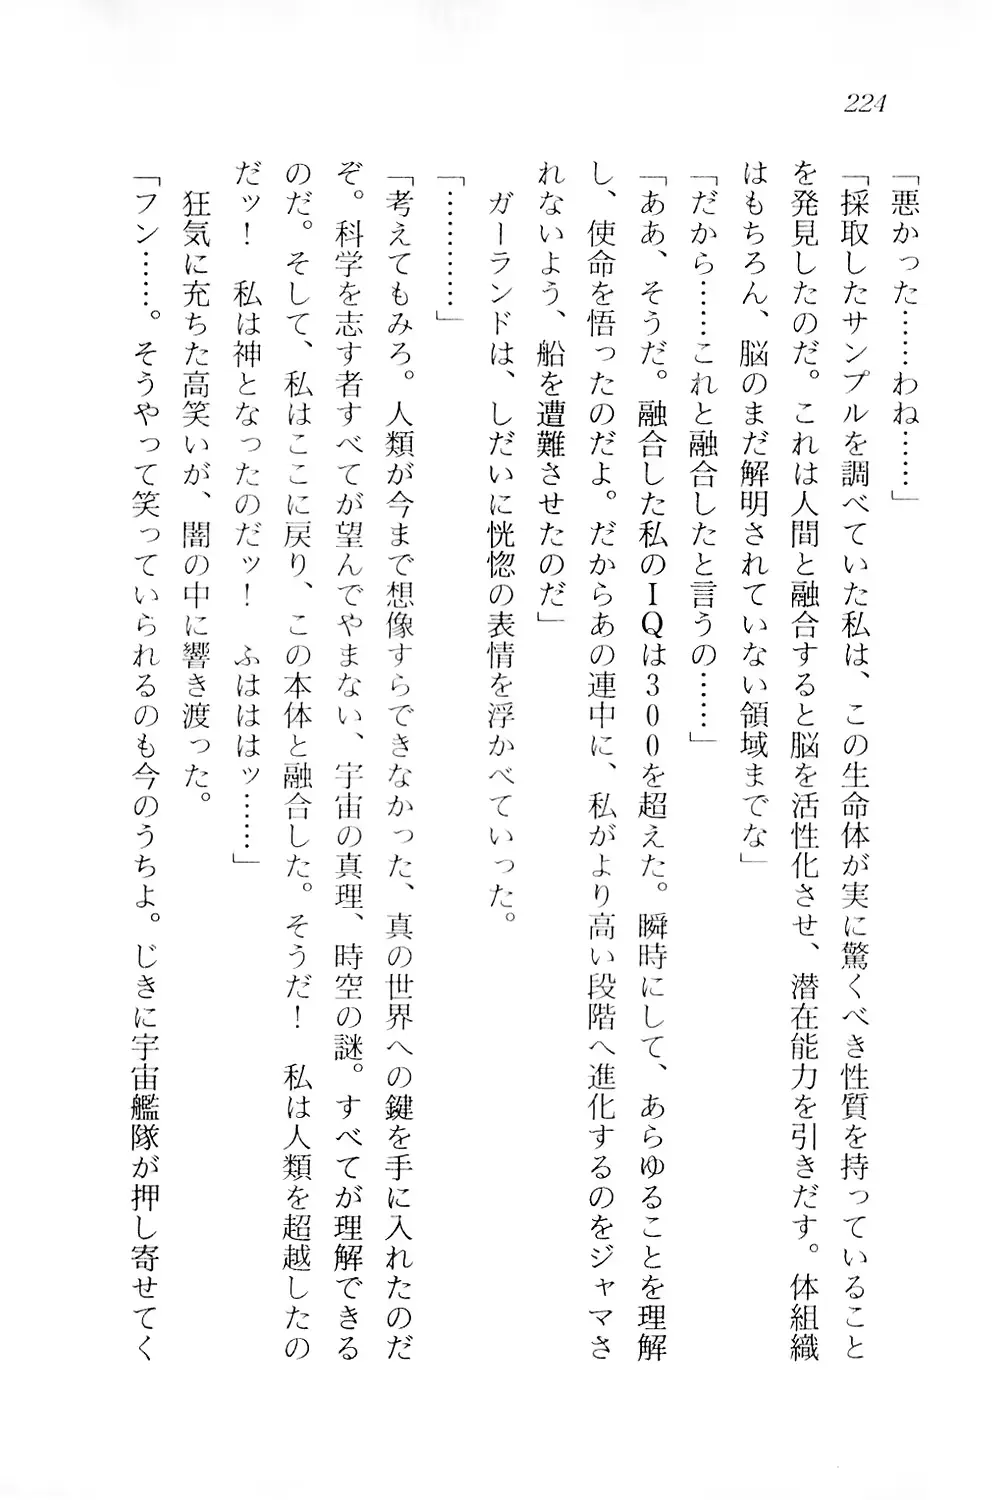 224
「悪かった……わね……」
「採取したサンプルを調べていた私は、この生命体が実に驚くべき性質を持っていること
を発見したのだ。これは人間と融合すると脳を活性化させ、潜在能力を引きだす。体組織
はもちろん、脳のまだ解明されていない領域までな」
「だから……これと融合したと言うの……」
「ああ、そうだ。融合した私のＩＱは３００を超えた。瞬時にして、あらゆることを理解
し、使命を悟ったのだよ。だからあの連中に、私がより高い段階へ進化するのをジャマさ
れないよう、船を遭難させたのだ」
ガーランドは、しだいに恍惚の表情を浮かべていった。
「…………」
「考えてもみろ。人類が今まで想像すらできなかった、真の世界への鍵を手に入れたのだ
ぞ。科学を志す者すべてが望んでやまない、宇宙の真理、時空の謎。すべてが理解できる
のだ。そして、私はここに戻り、この本体と融合した。そうだ！　私は人類を超越したの
だッ！　私は神となったのだッ！　ふはははッ……」
狂気に充ちた高笑いが、闇の中に響き渡った。
「フン……。そうやって笑っていられるのも今のうちよ。じきに宇宙艦隊が押し寄せてく